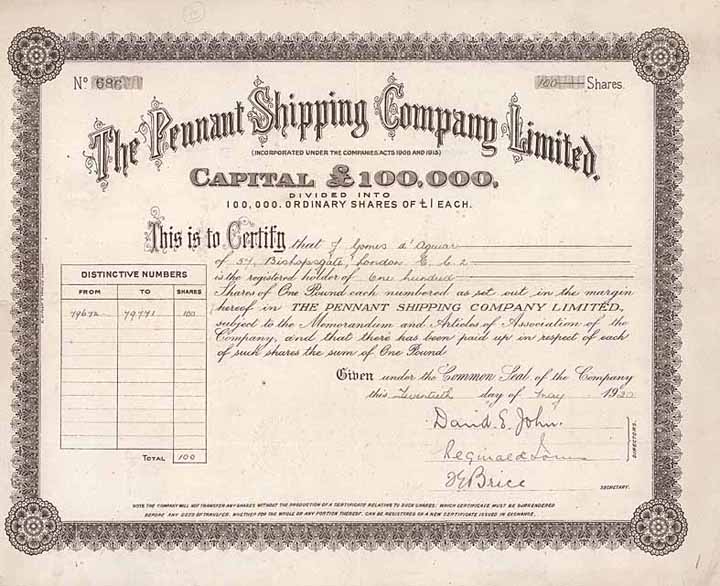 No 686
100 Shares.
The Pennant Shipping Company Limited.
(INCORPORATED UNDER THE COMPANIES ACTS 1908 AND 1913)
CAPITAL £100,000,
DIVIDED INTO
100,000. ORDINARY SHARES OF £1 EACH.
This is to Certify that J Gomes d'Aguiar
of 57, Bishopsgate, London E. C. 2
is the registered holder of One hundred
Shares of One Pound each numbered as set out in the margin
hereof in THE PENNANT SHIPPING COMPANY LIMITED,
subject to the Memorandum and Articles of Association of the
Company, and that there has been paid up in respect of each
of such shares the sum of One Pound
Given under the Common Seal of the Company
this Twentieth day of May 1920
DISTINCTIVE NUMBERS
FROM TO SHARES
79672 79771 100
TOTAL 100
David E. John.
Reginald
Brice
DIRECTORS.
SECRETARY.
NOTE THE COMPANY WILL NOT TRANSFER ANY SHARES WITHOUT THE PRODUCTION OF A CERTIFICATE RELATING TO SUCH SHARES, WHICH CERTIFICATE MUST BE SURRENDERED
BEFORE ANY DEED OF TRANSFER, WHETHER FOR THE WHOLE OR ANY PORTION THEREOF, CAN BE REGISTERED OR A NEW CERTIFICATE ISSUED IN EXCHANGE.